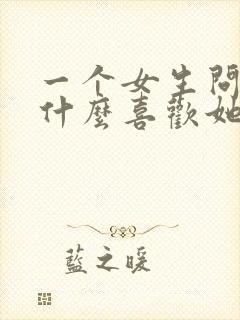 一个女生問
什麼喜歡她
藍之暖